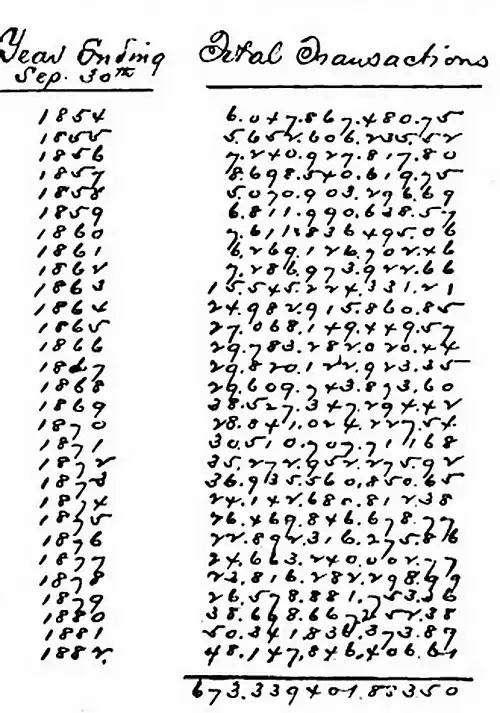 Year Ending Sep. 30th Total Transactions
1854 6.047.867.480.75
1855 5.652.606.235.52
1856 7.240.927.817.80
1857 8.698.540.619.75
1858 5.070.903.296.69
1859 6.811.990.638.57
1860 7.611.836.495.06
1861 6.269.126.702.46
1862 7.286.973.922.66
1863 15.545.224.331.21
1864 24.982.915.860.85
1865 27.068.149.449.57
1866 29.783.282.020.44
1867 29.820.122.923.35
1868 29.609.743.873.60
1869 38.527.347.294.42
1870 28.841.024.227.54
1871 30.510.707.711.68
1872 35.272.952.275.92
1873 36.935.560.850.65
1874 24.142.680.812.38
1875 26.469.846.678.77
1876 22.892.316.275.86
1877 24.663.240.002.77
1878 23.816.282.298.99
1879 26.578.881.753.36
1880 38.698.667.252.38
1881 50.341.836.373.89
1882. 48.147.846.406.61
673.339401.88350